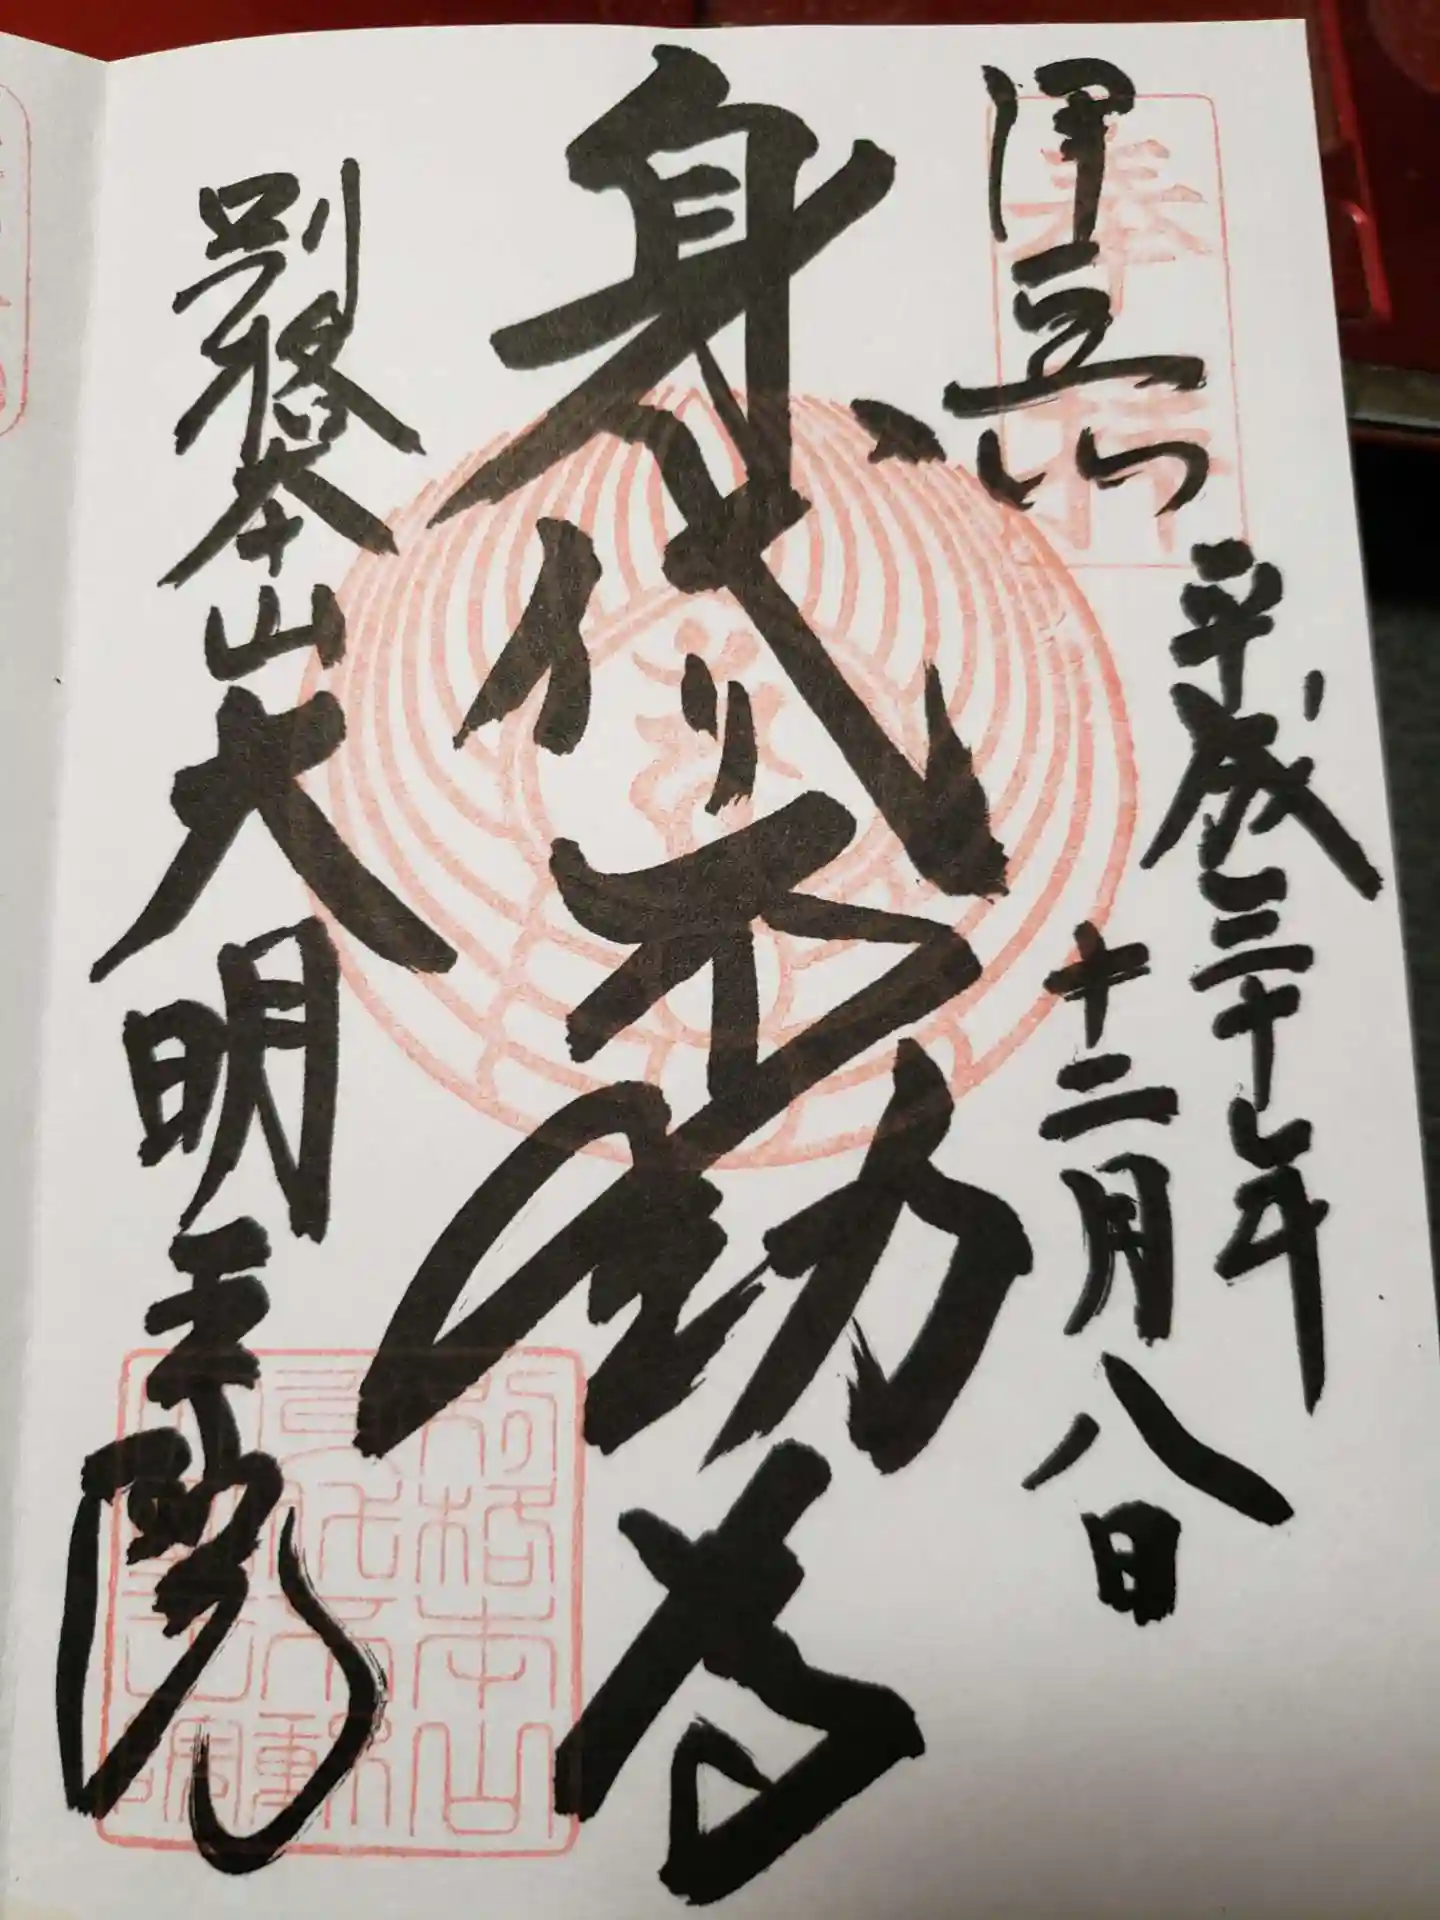 奉拝
伊豆山
平成三十年
十二月八日
身代り不動尊
別格本山大明王院
別格本山
身代不動